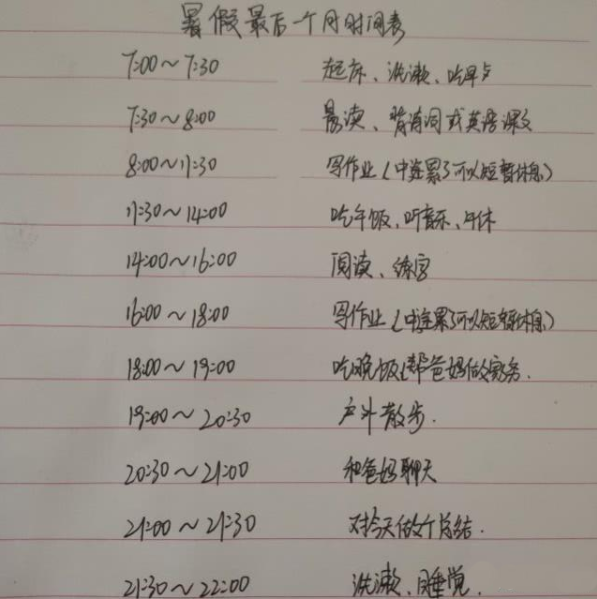 暑假最后一个月时间表
7:00～7:30 起床、洗漱、吃早点
7:30～8:00 晨读、背诗词或英语课文
8:00～11:30 写作业(中途累了可以短暂休息)
11:30～14:00 吃午饭、听音乐、午休
14:00～16:00 阅读、练字
16:00～18:00 写作业(中途累了可以短暂休息)
18:00～19:00 吃晚饭、帮爸妈做家务.
19:00～20:30 户外散步.
20:30～21:00 和爸妈聊天
21:00～21:30 对今天做个总结.
21:30～22:00 洗漱、睡觉.